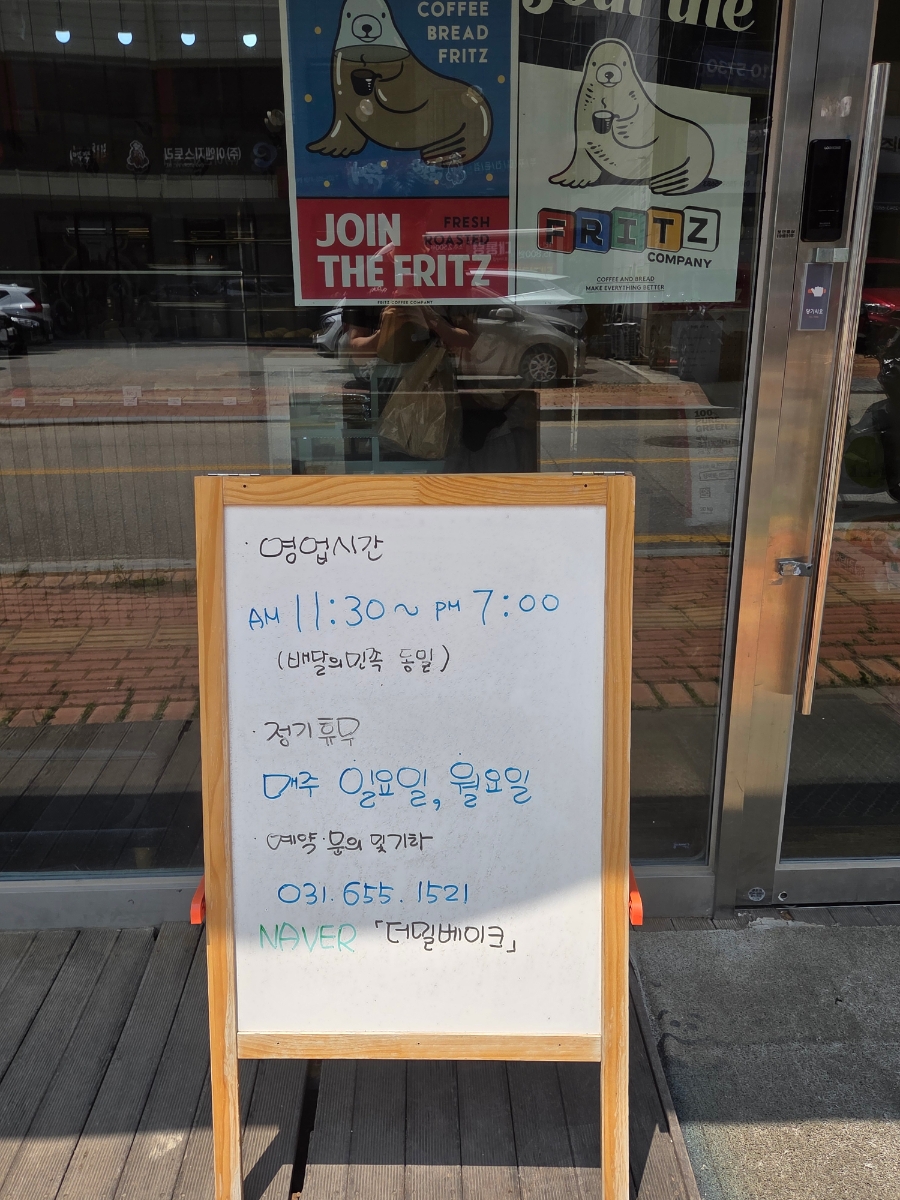 COFFEE
BREAD
FRITZ
JOIN
THE FRITZ
FRESH
ROASTED
FRITZ COFFEE COMPANY
FRITZ
COMPANY
COFFEE AND BREAD
MAKE EVERYTHING BETTER
· 영업시간
AM 11:30 ~ PM 7:00
(배달의민족 동일)
· 정기휴무
매주 일요일, 월요일
예약·문의 및 기타
031. 655. 1521
NAVER 「더밀베이크」